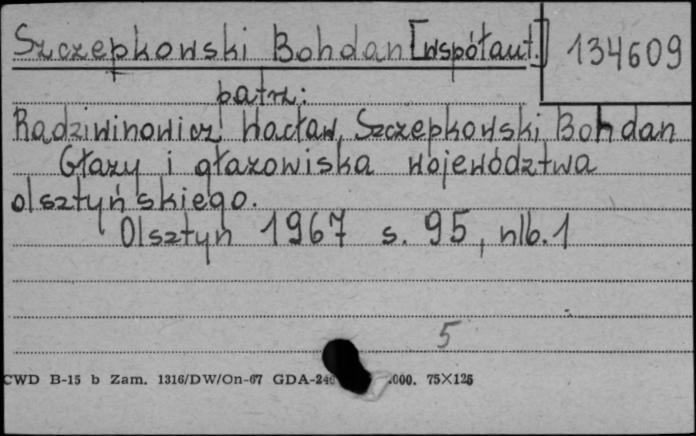 Szczepkowski Bohdan [współaut.] 134609
patrz:
Radziwinowicz Wacław, Szczepkowski Bohdan
Głazy i głazowiska województwa
olsztyńskiego.
Olsztyn 1967 s. 95, nlb. 1
5
CWD B-15 b Zam. 1316/DW/On-67 GDA-246 .000. 75×125